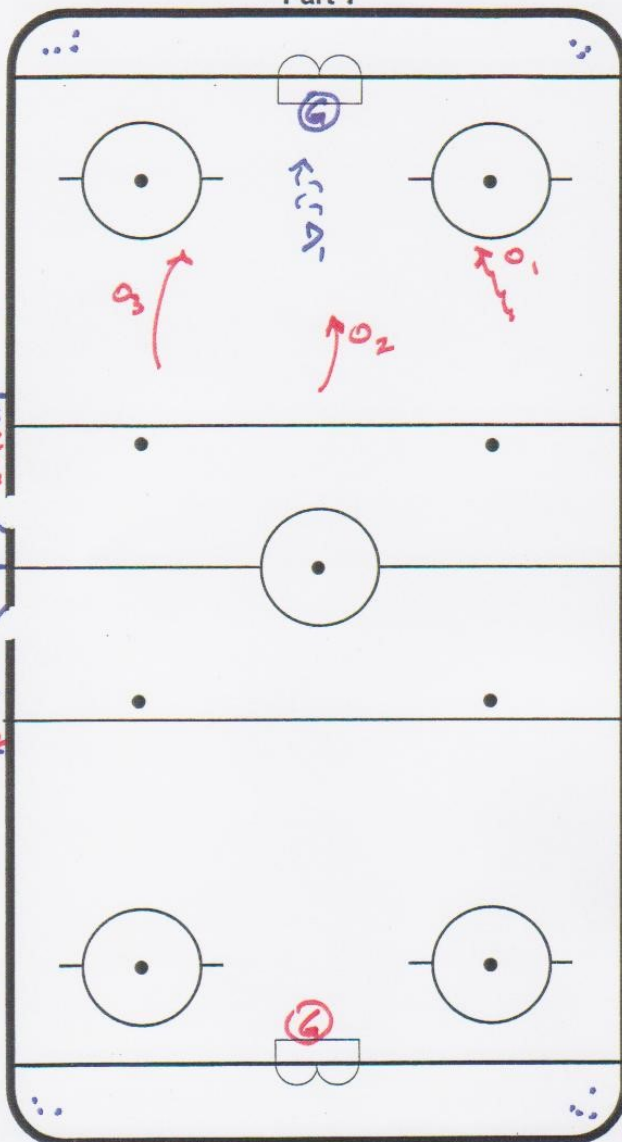 G
O1
O3
O2
G